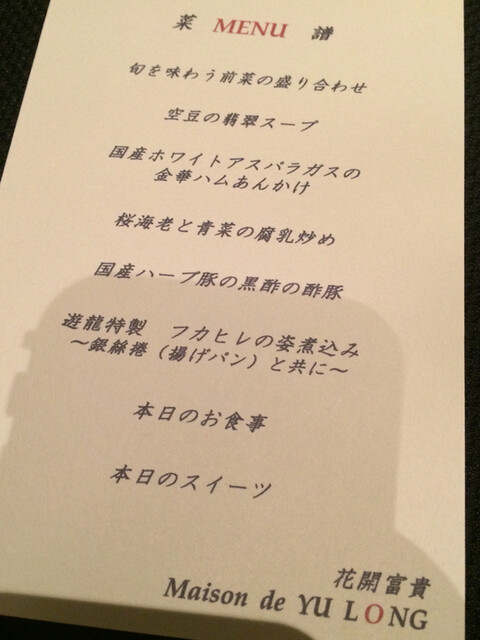 菜 MENU 譜
旬を味わう前菜の盛り合わせ
空豆の翡翠スープ
国産ホワイトアスパラガスの
金華ハムあんかけ
桜海老と青菜の腐乳炒め
国産ハーブ豚の黒酢の酢豚
遊龍特製 フカヒレの姿煮込み
～銀絲捲（揚げパン）と共に～
本日のお食事
本日のスイーツ
花開富貴
Maison de YU LONG